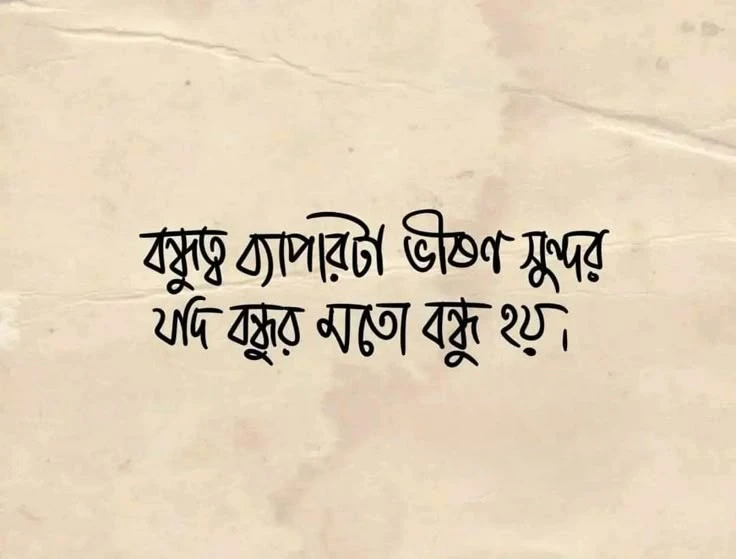 বন্ধুত্ব ব্যাপারটা ভীষণ সুন্দর
যদি বন্ধুর মতো বন্ধু হয়।